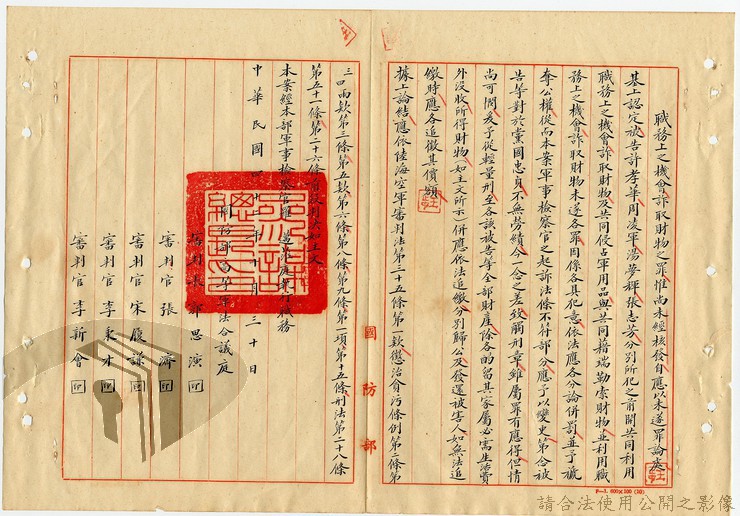 職務上之機會詐取財物之罪惟尚未經核發自應以未遂罪論處
基上認定被告許孝華周凌軍湯夢釋張志芳分別所犯之前開共同利用
職務上之機會詐取財物及共同侵占軍用品與共同藉端勒索財物並利用職
務上之機會詐取財物未遂各罪固係各具犯意依法應各分論併罰並予褫
奪公權從而本案軍事檢察官之起訴法條不符部分應予以變更第念被
告等對於黨國忠貞不無勞績今一念之差致觸刑章雖屬罪有應得但情
尚可憫爰予從輕量刑至各該被告等全部財產除各酌留其家屬必需生活費
外沒收所得財物如主文所示併應依法追繳分別歸公及發還被害人如無法追
繳時應各追徵其價額
據上論結應依陸海空軍審判法第三十五條第一款懲治貪污條例第二條第
三四兩款第三條第五款第六條第八條第九條第一項第十五條刑法第二十八條
第五十一條第二十六條前段判決如主文
本案經本部軍事檢察官羅 蒞庭執行職務
中華民國四十二年十月三十日
國防部 合議庭
審判長郭思演 印
審判官張 濟 印
審判官宋膺謀 印
審判官李秉才 印
審判官李新會 印
國防部
P—3. 600×100 (30)
請合法使用公開之影像